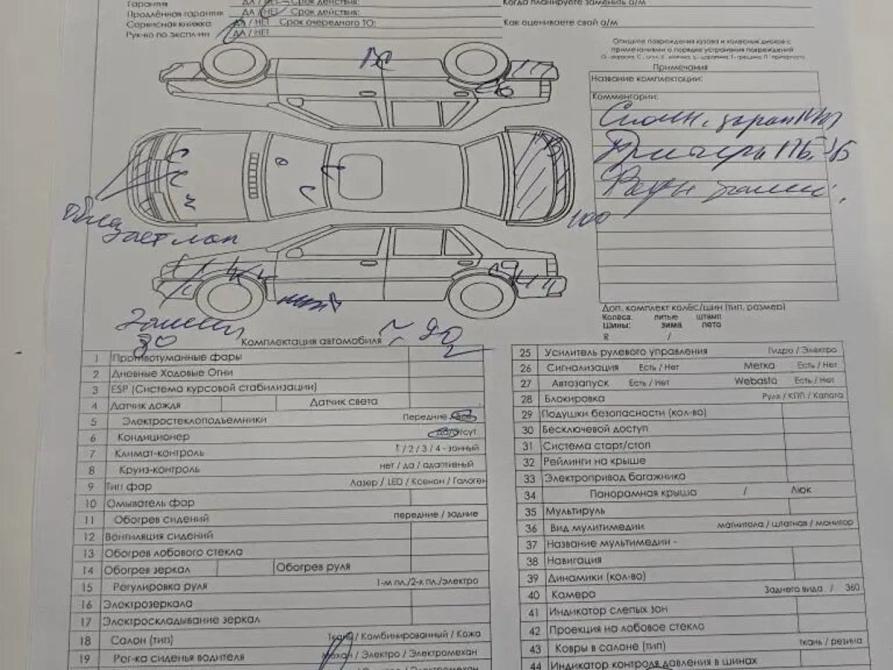 Гарантия ДА / НЕТ Срок действия: Когда планируете заменить а/м
Продлённая гарантия ДА / НЕТ Срок действия:
Сервисная книжка ДА / НЕТ Срок очередного ТО: Как оцениваете свой а/м
Рук-во по эксплуат ДА / НЕТ
Опишите повреждения кузова и колесных дисков с
примечаниями о порядке устранения повреждений
Примечания
Название комплектации:
Комментарии:
100
Доп. комплект колёс/шин (тип, размер)
Колеса: литые штамп
Шины: зима лето
R /
80
Комплектация автомобиля
1 Противотуманные фары
2 Дневные Ходовые Огни
3 ESP (Система курсовой стабилизации)
4 Датчик дождя Датчик света
5 Электростеклоподъемники Передние
6 Кондиционер
7 Климат-контроль 1 / 2 / 3 / 4 - зонный
8 Круиз-контроль нет / да / адаптивный
9 Тип фар Лазер / LED / Ксенон / Галоген
10 Омыватель фар
11 Обогрев сидений передние / задние
12 Вентиляция сидений
13 Обогрев лобового стекла
14 Обогрев зеркал Обогрев руля
15 Регулировка руля 1-м пл./2-х пл./электро
16 Электрозеркала
17 Электроскладывание зеркал
18 Салон (тип) Ткань / Комбинированный / Кожа
19 Рег-ка сиденья водителя Механ / Электро / Электромехан
25 Усилитель рулевого управления Гидро / Электро
26 Сигнализация Есть / Нет Метка Есть / Нет
27 Автозапуск Есть / Нет Webasto Есть / Нет
28 Блокировка Руля / КПП / Капота
29 Подушки безопасности (кол-во)
30 Бесключевой доступ
31 Система старт/стоп
32 Рейлинги на крыше
33 Электропривод багажника
34 Панорамная крыша / Люк
35 Мультируль
36 Вид мультимедии магнитола / штатная / монитор
37 Название мультимедии -
38 Навигация
39 Динамики (кол-во)
40 Камера Заднего вида / 360
41 Индикатор слепых зон
42 Проекция на лобовое стекло
43 Ковры в салоне (тип) ткань / резина
44 Индикатор контроля давления в шинах